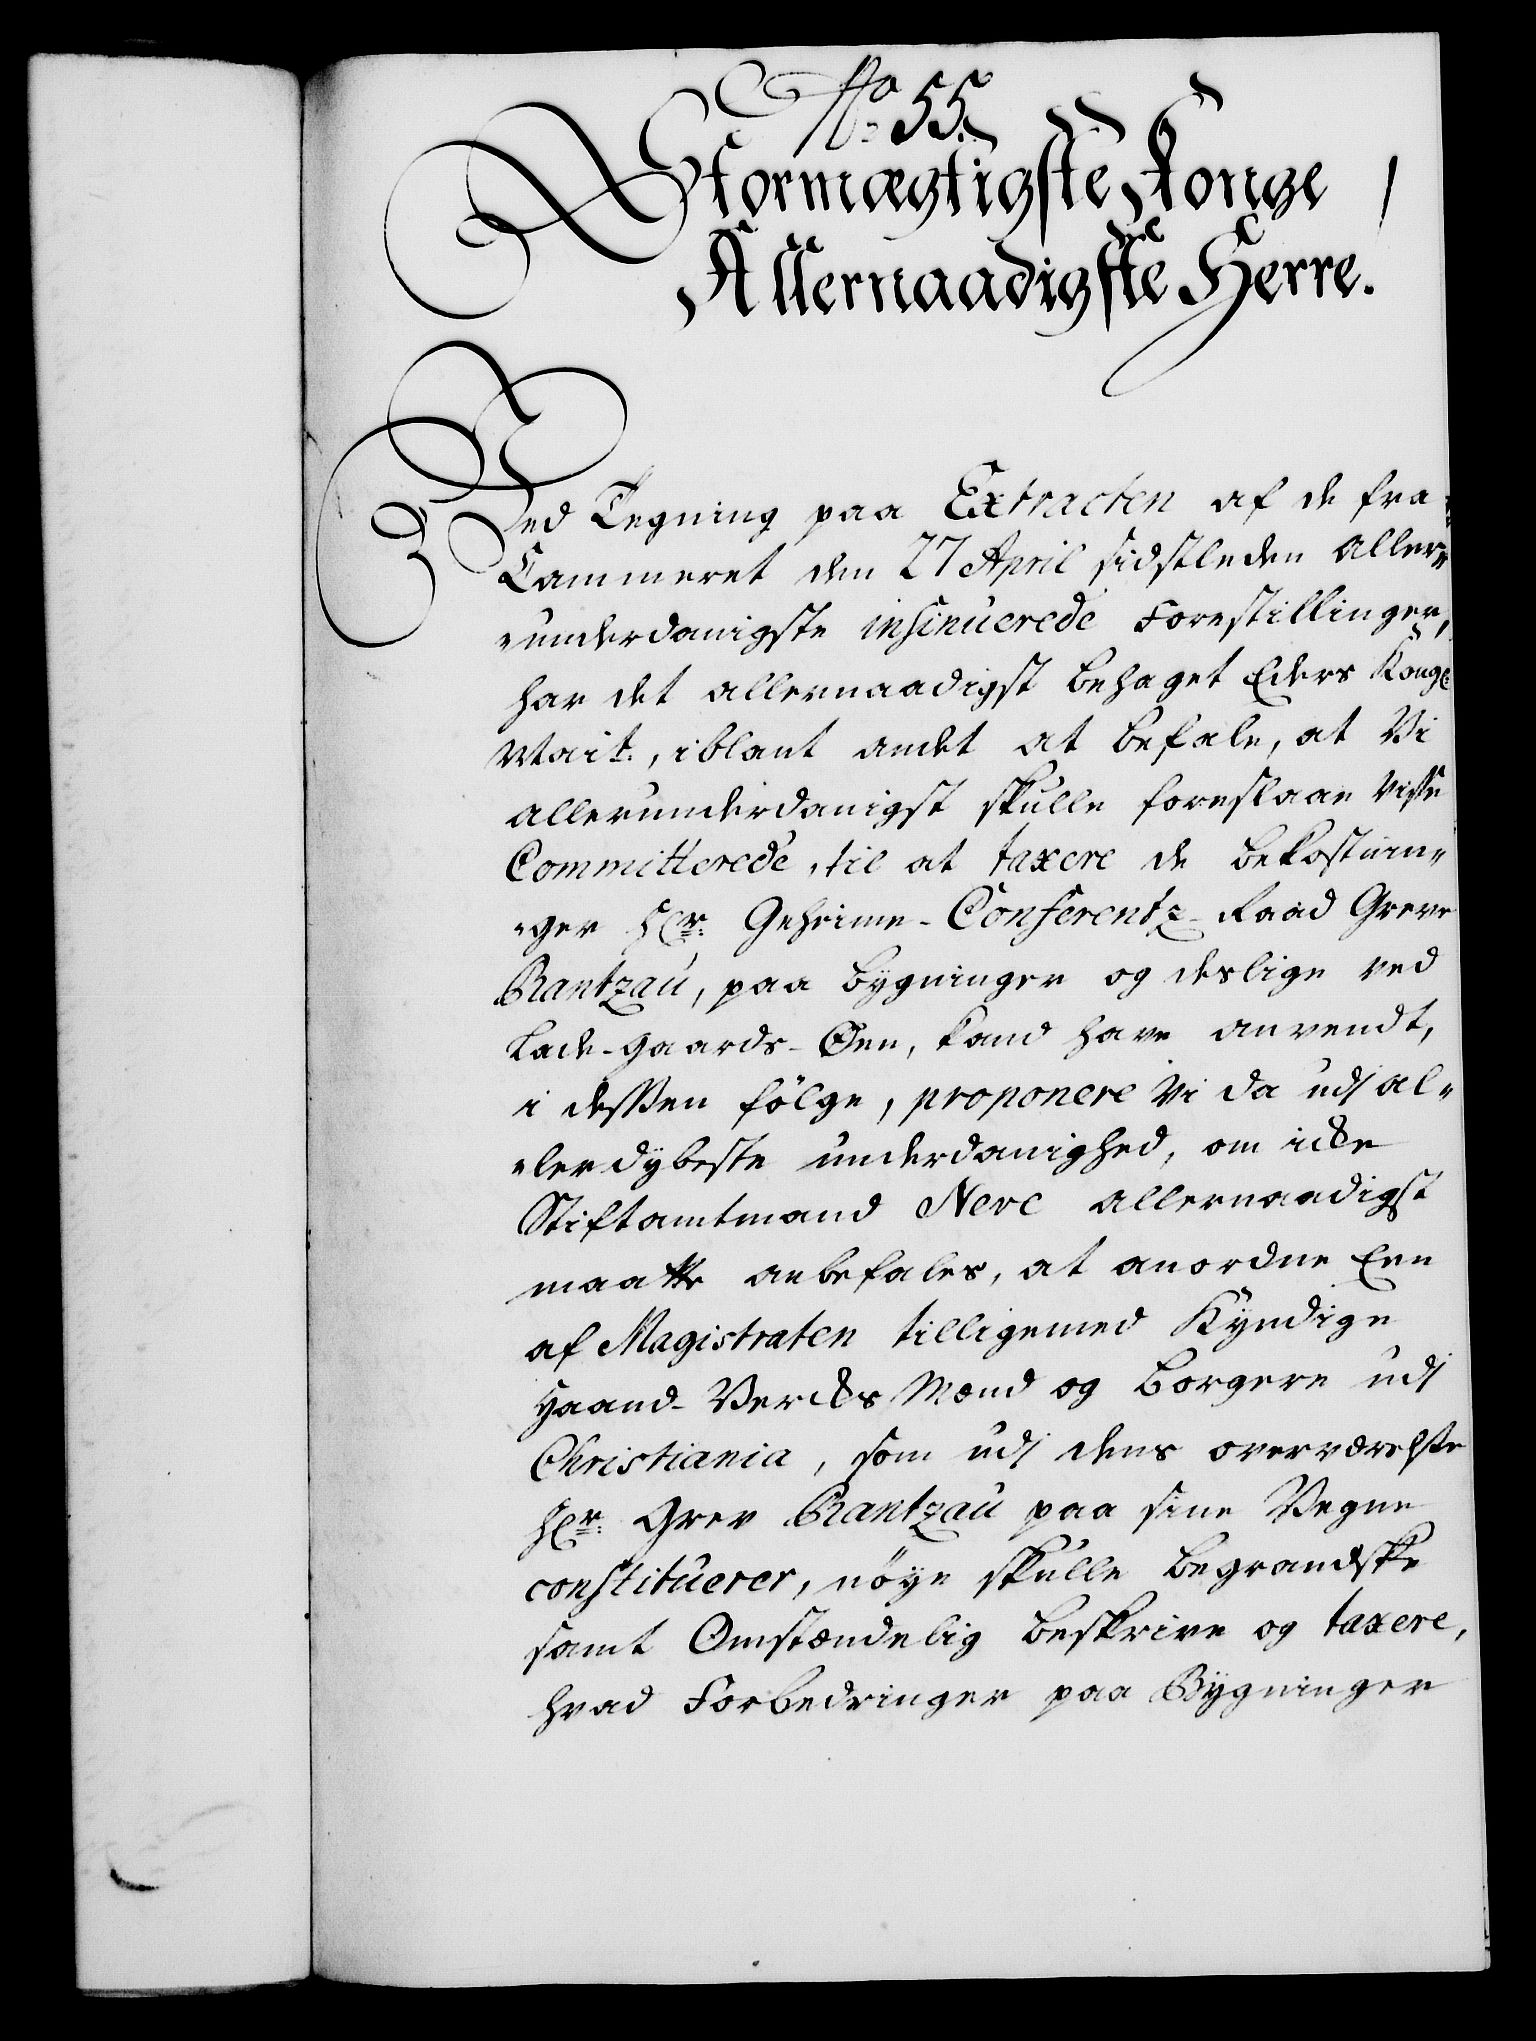 No 55.
Stormægtigste Konge
Allernaadigste Herre.
Ved Tegning paa Extracten af de fra
Cammeret den 27 April sidstleden aller-
underdanigste insinuerede Forestillinger,
har det allernaadigst behaget Eders Kongl
Mait., iblant andet at befale, at Vi
allerunderdanigst skulle foreslaae visse
Committerede, til at taxere de bekostnin-
ger Hr. Geheime-Conferentz-Raad Greve
Rantzau, paa bygninger og deslige ved
Lade-gaards-Øen, kand have anvendt,
i dessen følge, proponere Vi da udi al-
lerdybeste underdanighed, om icke
Stiftamtmand Nere allernaadigst
maatte anbefales, at anordne Een
af Magistraten tilligemed Kyndige
Haand-Vercks Mænd og Borgere udi
Christiania, som udi dens overværelse
Hr. Grev Rantzau paa sine Vegne
constituerer, nöye skulle begrandske
samt Omstændelig beskrive og taxere,
hvad Forbedringer paa Bygninger